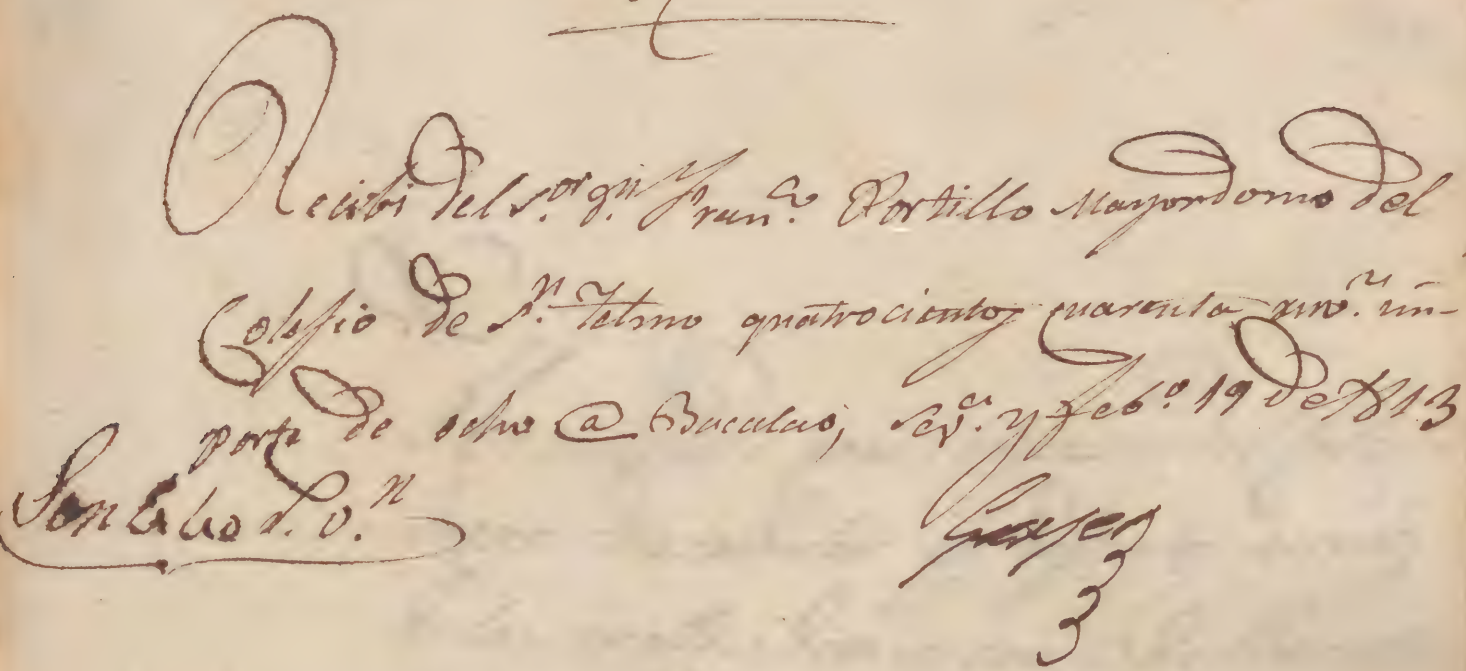 Recibi del S.or Dn Fran.co Portillo Mayordomo del
Colejio de S.n Telmo quatrocientos cuarenta rr.s vn im-
porte de ocho @ Bacalao, Sev.a y Feb.o 19 de 1813
Son 440 r.s v.n